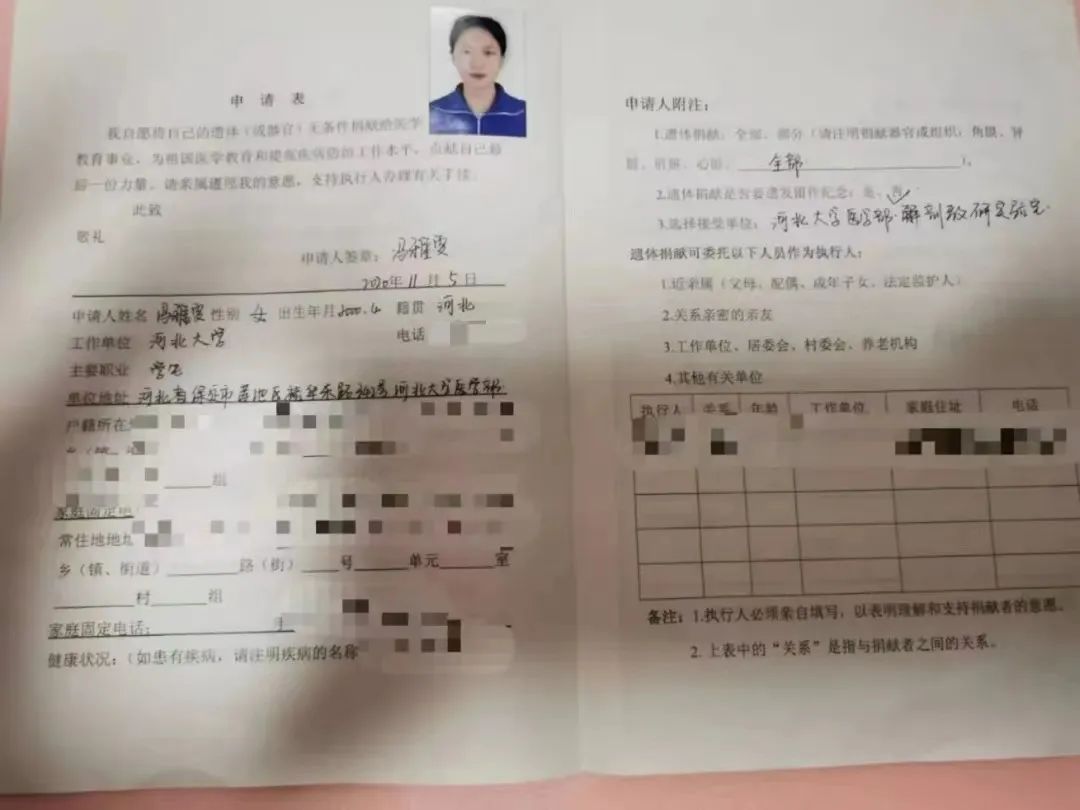 申请表
我自愿将自己的遗体（或器官）无条件捐献给医学
教育事业，为祖国医学教育和提高疾病防治工作水平，贡献自己最
后一份力量。请亲属遵照我的意愿，支持执行人办理有关手续。
此致
敬礼
申请人签章：冯雅雯
2020年11月5日
申请人姓名 冯雅雯 性别 女 出生年月 2000.4 籍贯 河北
工作单位 河北大学 电话
主要职业 学生
单位地址 河北省保定市莲池区裕华东路342号河北大学医学部
户籍所在
组
家庭固定电
常住地地址
乡（镇、街道）路（街）号单元室
村组
家庭固定电话：
健康状况：（如患有疾病，请注明疾病的名称
申请人附注：
1.遗体捐献：全部、部分（请注明捐献器官或组织：角膜、肾
脏、肝脏、心脏、全部）。
2.遗体捐献是否要遗发留作纪念：是、否
3.选择接受单位：河北大学医学部·解剖教研室
遗体捐献可委托以下人员作为执行人：
1.近亲属（父母、配偶、成年子女、法定监护人）
2.关系亲密的亲友
3.工作单位、居委会、村委会、养老机构
4.其他有关单位
执行人 关系 年龄 工作单位 家庭住址 电话
备注：1.执行人必须亲自填写，以表明理解和支持捐献者的意愿。
2.上表中的“关系”是指与捐献者之间的关系。